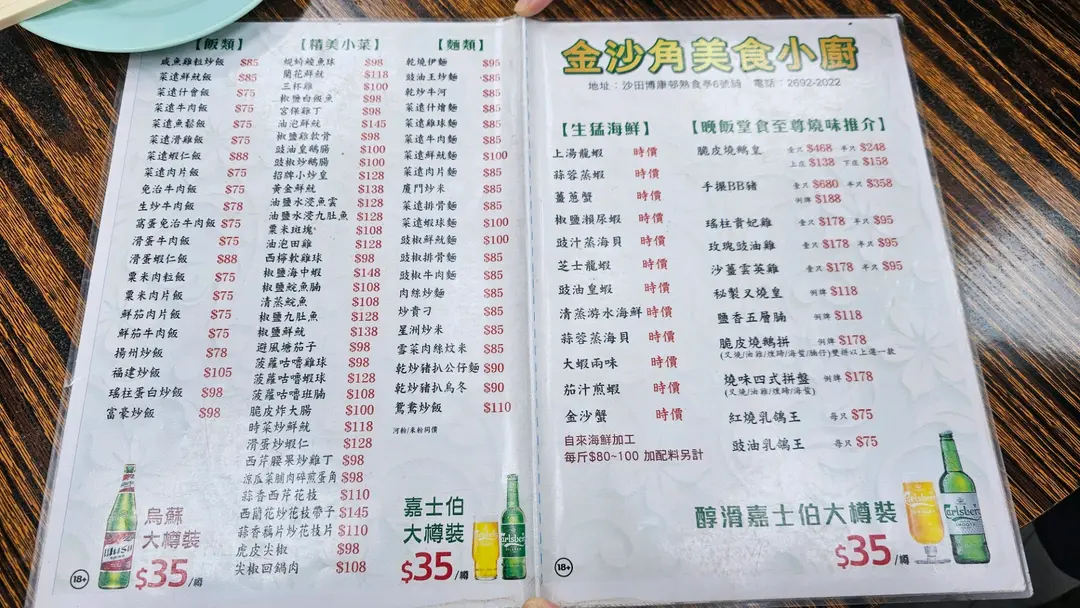 【飯類】
咸魚雞粒炒飯 $85
菜遠鮮魷飯 $85
菜遠什會飯 $75
菜遠牛肉飯 $75
菜遠魚鬆飯 $75
菜遠滑雞飯 $75
菜遠蝦仁飯 $88
菜遠肉片飯 $75
免治牛肉飯 $75
生炒牛肉飯 $78
窩蛋免治牛肉飯 $75
滑蛋牛肉飯 $75
滑蛋蝦仁飯 $88
粟米肉粒飯 $75
粟米肉片飯 $75
鮮茄肉片飯 $75
鮮茄牛肉飯 $75
揚州炒飯 $78
福建炒飯 $105
瑤柱蛋白炒飯 $98
富豪炒飯 $98
烏蘇
大樽裝
$35/樽
18+
【精美小菜】
蜆蚧鯪魚球 $98
蘭花鮮魷 $118
三杯雞 $100
椒鹽白飯魚 $98
宮保雞丁 $98
油泡鮮魷 $145
椒鹽雞軟骨 $98
豉油皇鵝腸 $100
豉椒炒鵝腸 $100
招牌小炒皇 $128
黃金鮮魷 $138
油鹽水浸魚雲 $128
油鹽水浸九肚魚 $128
粟米斑塊 $108
油泡田雞 $128
西檸軟雞球 $98
椒鹽海中蝦 $148
椒鹽鯇魚腩 $108
清蒸鯇魚 $108
椒鹽九肚魚 $128
椒鹽鮮魷 $138
避風塘茄子 $98
菠蘿咕嚕雞球 $98
菠蘿咕嚕蝦球 $128
菠蘿咕嚕班腩 $108
脆皮炸大腸 $100
時菜炒鮮魷 $118
滑蛋炒蝦仁 $128
西芹腰果炒雞丁 $98
涼瓜菜脯肉碎煎蛋角 $98
蒜香西芹花枝 $110
西蘭花炒花枝帶子 $145
蒜香藕片炒花枝片 $110
虎皮尖椒 $98
尖椒回鍋肉 $108
【麵類】
乾燒伊麵 $95
豉油王炒麵 $85
乾炒牛河 $85
菜遠什燴麵 $85
菜遠雞球麵 $85
菜遠牛肉麵 $85
菜遠鮮魷麵 $100
菜遠肉片麵 $85
廈門炒米 $85
菜遠排骨麵 $85
菜遠蝦球麵 $100
豉椒鮮魷麵 $100
豉椒排骨麵 $85
豉椒牛肉麵 $85
肉絲炒麵 $85
炒貴刁 $85
星洲炒米 $85
雪菜肉絲炆米 $85
乾炒豬扒公仔麵 $90
乾炒豬扒烏冬 $90
鴛鴦炒飯 $110
河粉/米粉同價
嘉士伯
大樽裝
$35/樽
金沙角美食小廚
地址：沙田博康邨熟食亭6號舖 電話：2692-2022
【生猛海鮮】
上湯龍蝦 時價
蒜蓉蒸蝦 時價
薑蔥蟹 時價
椒鹽瀨尿蝦 時價
豉汁蒸海貝 時價
芝士龍蝦 時價
豉油皇蝦 時價
清蒸游水海鮮 時價
蒜蓉蒸海貝 時價
大蝦兩味 時價
茄汁煎蝦 時價
金沙蟹 時價
自來海鮮加工
每斤$80~100 加配料另計
【晚飯堂食至尊燒味推介】
脆皮燒鵝皇 全只 $468 半只 $248
上庄 $138 下庄 $158
手撮BB豬 全只 $680 半只 $358
例牌 $188
瑤柱貴妃雞 全只 $178 半只 $95
玫瑰豉油雞 全只 $178 半只 $95
沙薑雲英雞 全只 $178 半只 $95
秘製叉燒皇 例牌 $118
鹽香五層腩 例牌 $118
脆皮燒鵝拼 例牌 $178
(叉燒/油雞/煙蹄/海蜇/腩仔)雙拼以上選一款
燒味四式拼盤 例牌 $178
(叉燒/油雞/煙蹄/海蜇)
紅燒乳鴿王 每只 $75
豉油乳鴿王 每只 $75
醇滑嘉士伯大樽裝
$35/樽
18+
Carlsberg
SMOOTH